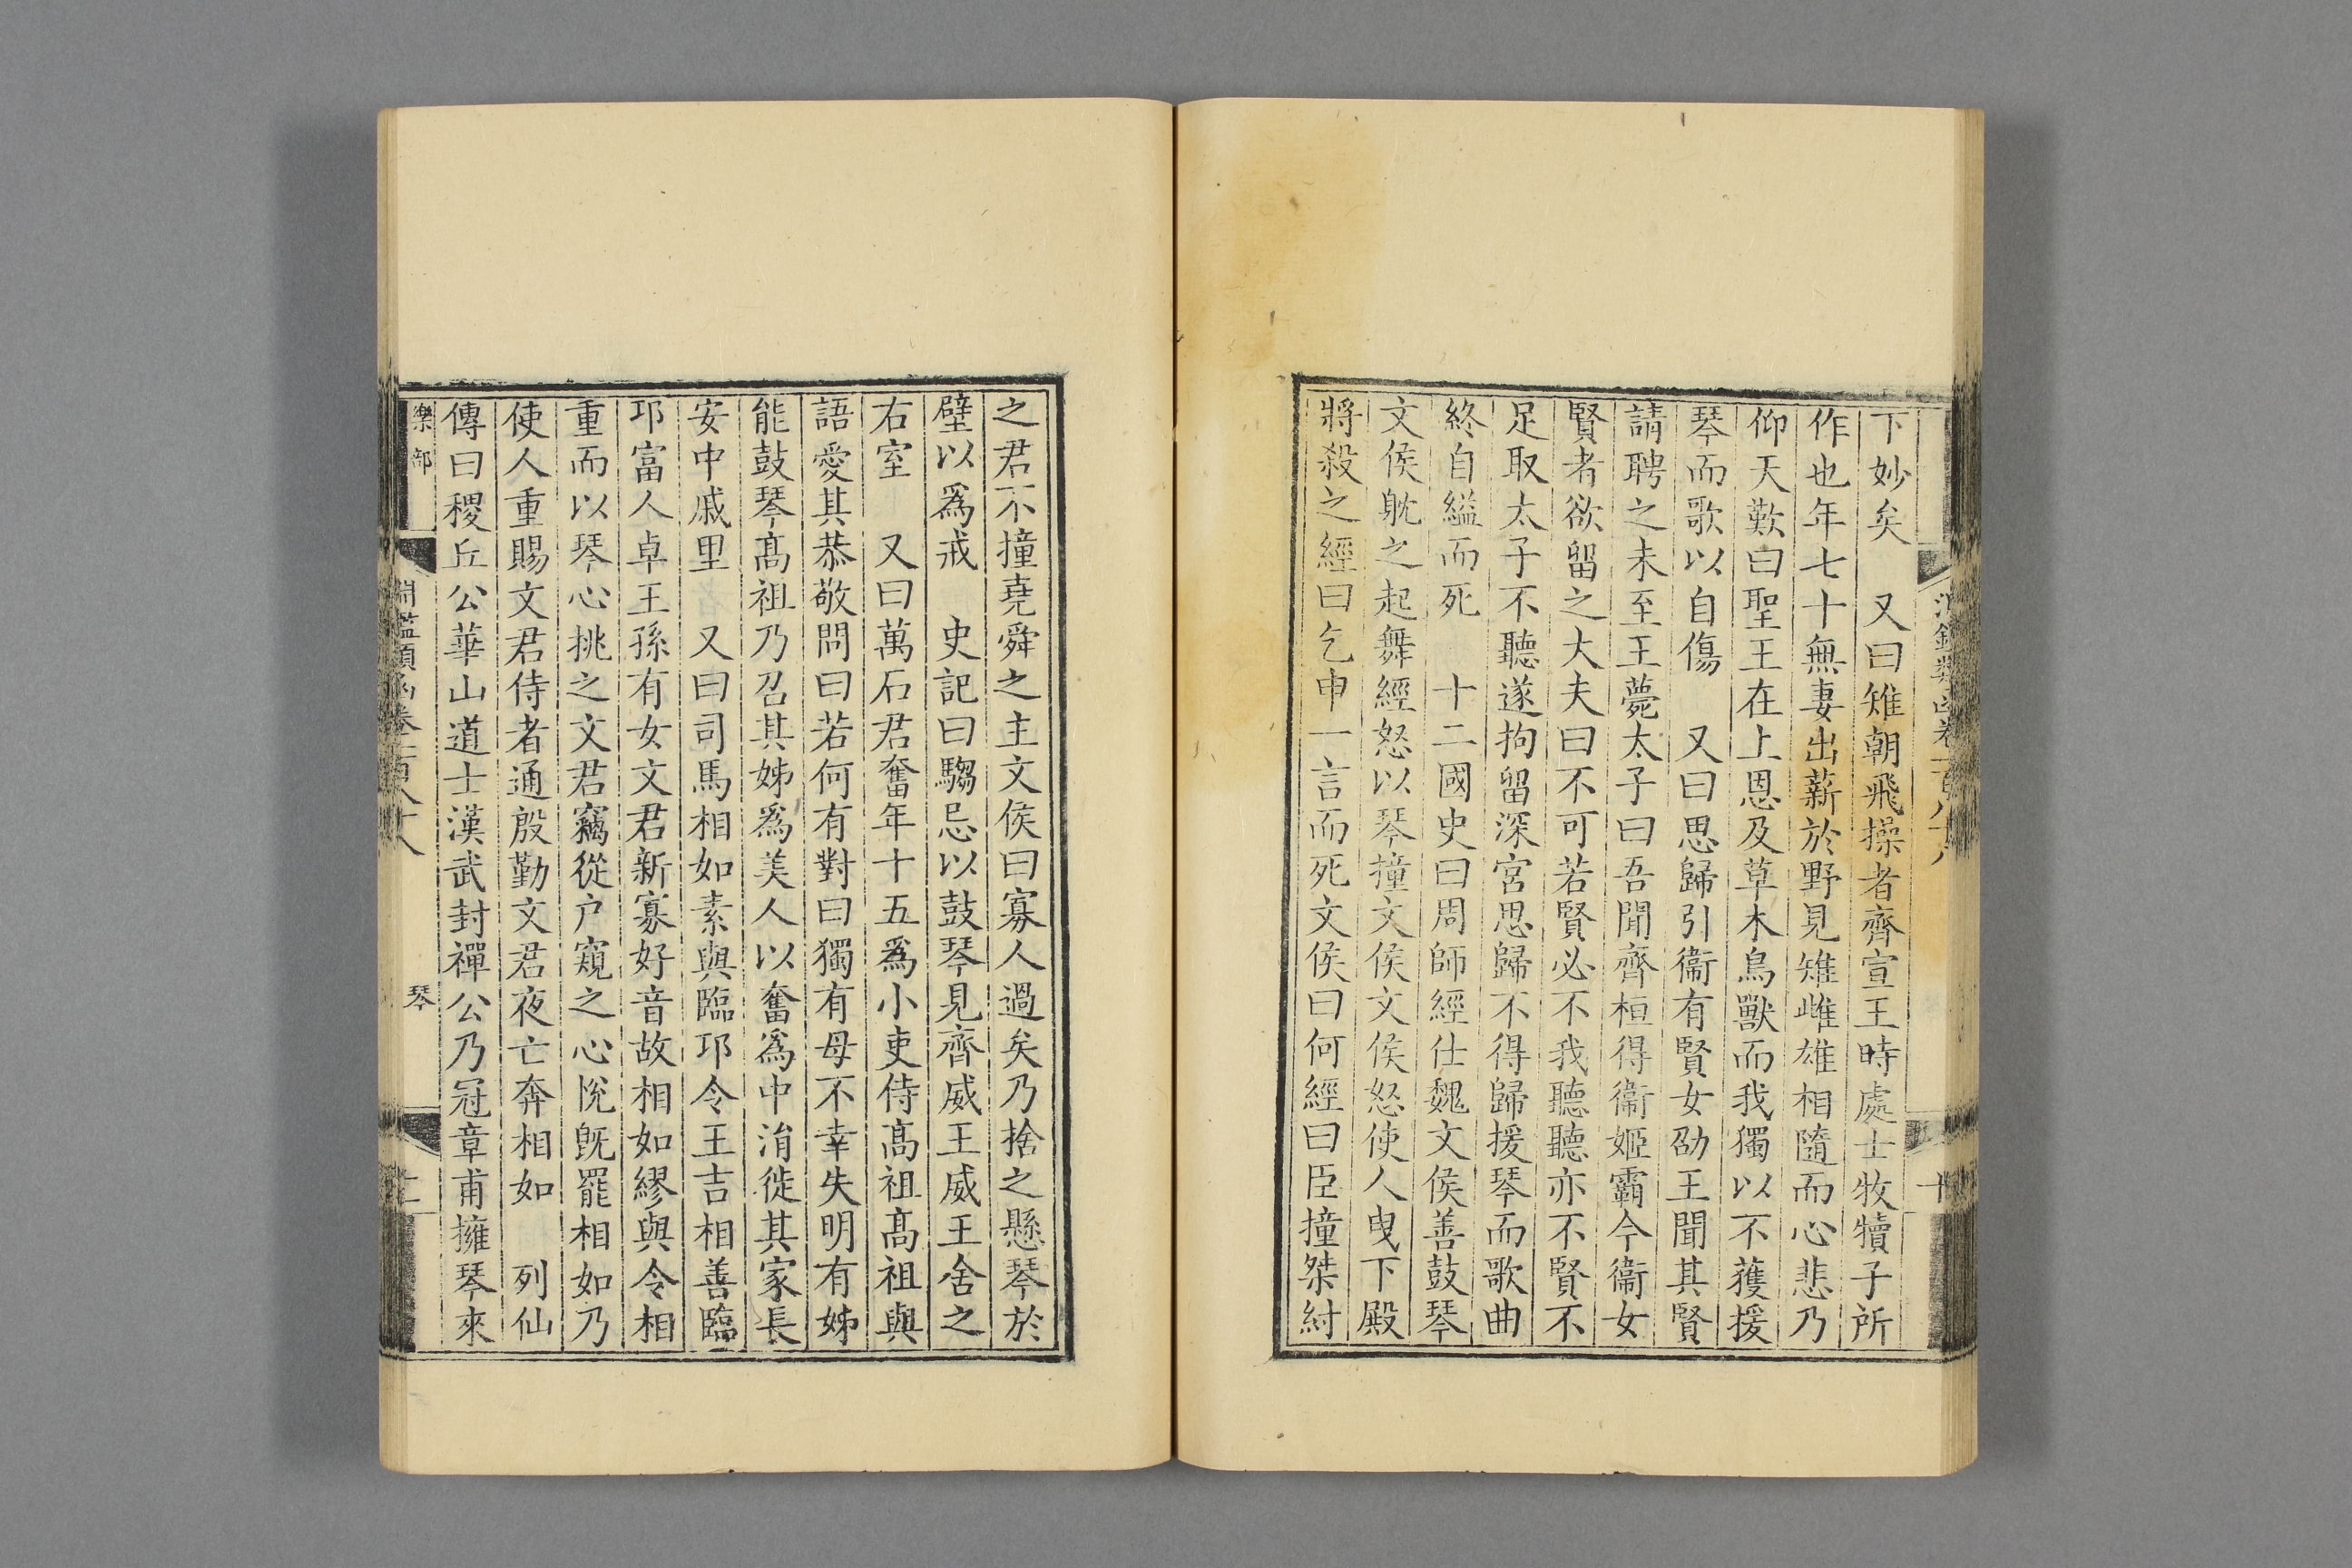 下妙矣　又曰雉朝飛操者齊宣王時處士牧犢子所
作也年七十無妻出薪於野見雉雌雄相隨而心悲乃
仰天歎曰聖王在上恩及草木鳥獸而我獨以不獲援
琴而歌以自傷　又曰思歸引衞有賢女劭王聞其賢
請聘之未至王薨太子曰吾聞齊桓得衞姬霸今衞女
賢者欲留之大夫曰不可若賢必不我聽聽亦不賢不
足取太子不聽遂拘留深宮思歸不得歸援琴而歌曲
終自縊而死　十二國史曰周師經仕魏文侯善鼓琴
文侯躭之起舞經怒以琴撞文侯文侯怒使人曳下殿
將殺之經曰乞申一言而死文侯曰何經曰臣撞桀紂
之君不撞堯舜之主文侯曰寡人過矣乃捨之懸琴於
壁以爲戒　史記曰騶忌以鼓琴見齊威王威王舍之
右室　又曰萬石君奮年十五爲小吏侍髙祖髙祖與
語愛其恭敬問曰若何有對曰獨有母不幸失明有姊
能鼓琴髙祖乃召其姊爲美人以奮爲中涓徙其家長
安中戚里　又曰司馬相如素與臨邛令王吉相善臨
邛富人卓王孫有女文君新寡好音故相如繆與令相
重而以琴心挑之文君竊從户窺之心恱旣罷相如乃
使人重賜文君侍者通殷勤文君夜亡奔相如　列仙
傳曰稷丘公華山道士漢武封禪公乃冠章甫擁琴來
樂部
淵鑑類函卷一百八十八
琴